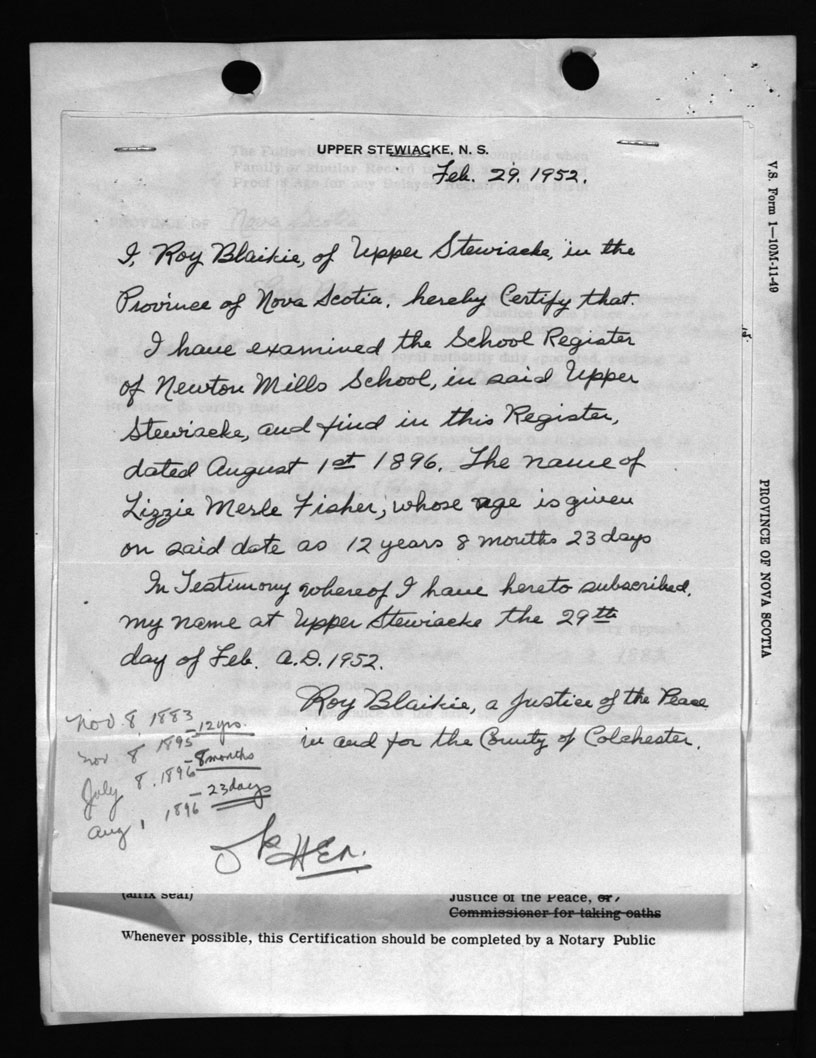 UPPER STEWIACKE, N. S.
Feb. 29, 1952.
I, Roy Blaikie, of Upper Stewiacke, in the
Province of Nova Scotia, hereby Certify that.
I have examined the School Register
of Newton Mills School, in said Upper
Stewiacke, and find in this Register,
dated August 1st 1896. The name of
Lizzie Merle Fisher, whose age is given
on said date as 12 years 8 months 23 days
In Testimony whereof I have hereto subscribed,
my name at Upper Stewiacke the 29th
day of Feb. A.D. 1952.
Roy Blaikie, a Justice of the Peace
in and for the County of Colchester.
Nov. 8, 1883
– 12 yrs.
Nov 8 1895
– 8 months
July 8, 1896
– 23 days
Aug 1 1896
OK HEA.
(affix seal)
Justice of the Peace, or,
Commissioner for taking oaths
Whenever possible, this Certification should be completed by a Notary Public
V.S. Form 1—10M-11-49
PROVINCE OF NOVA SCOTIA
PROVINCE OF Nova Scotia